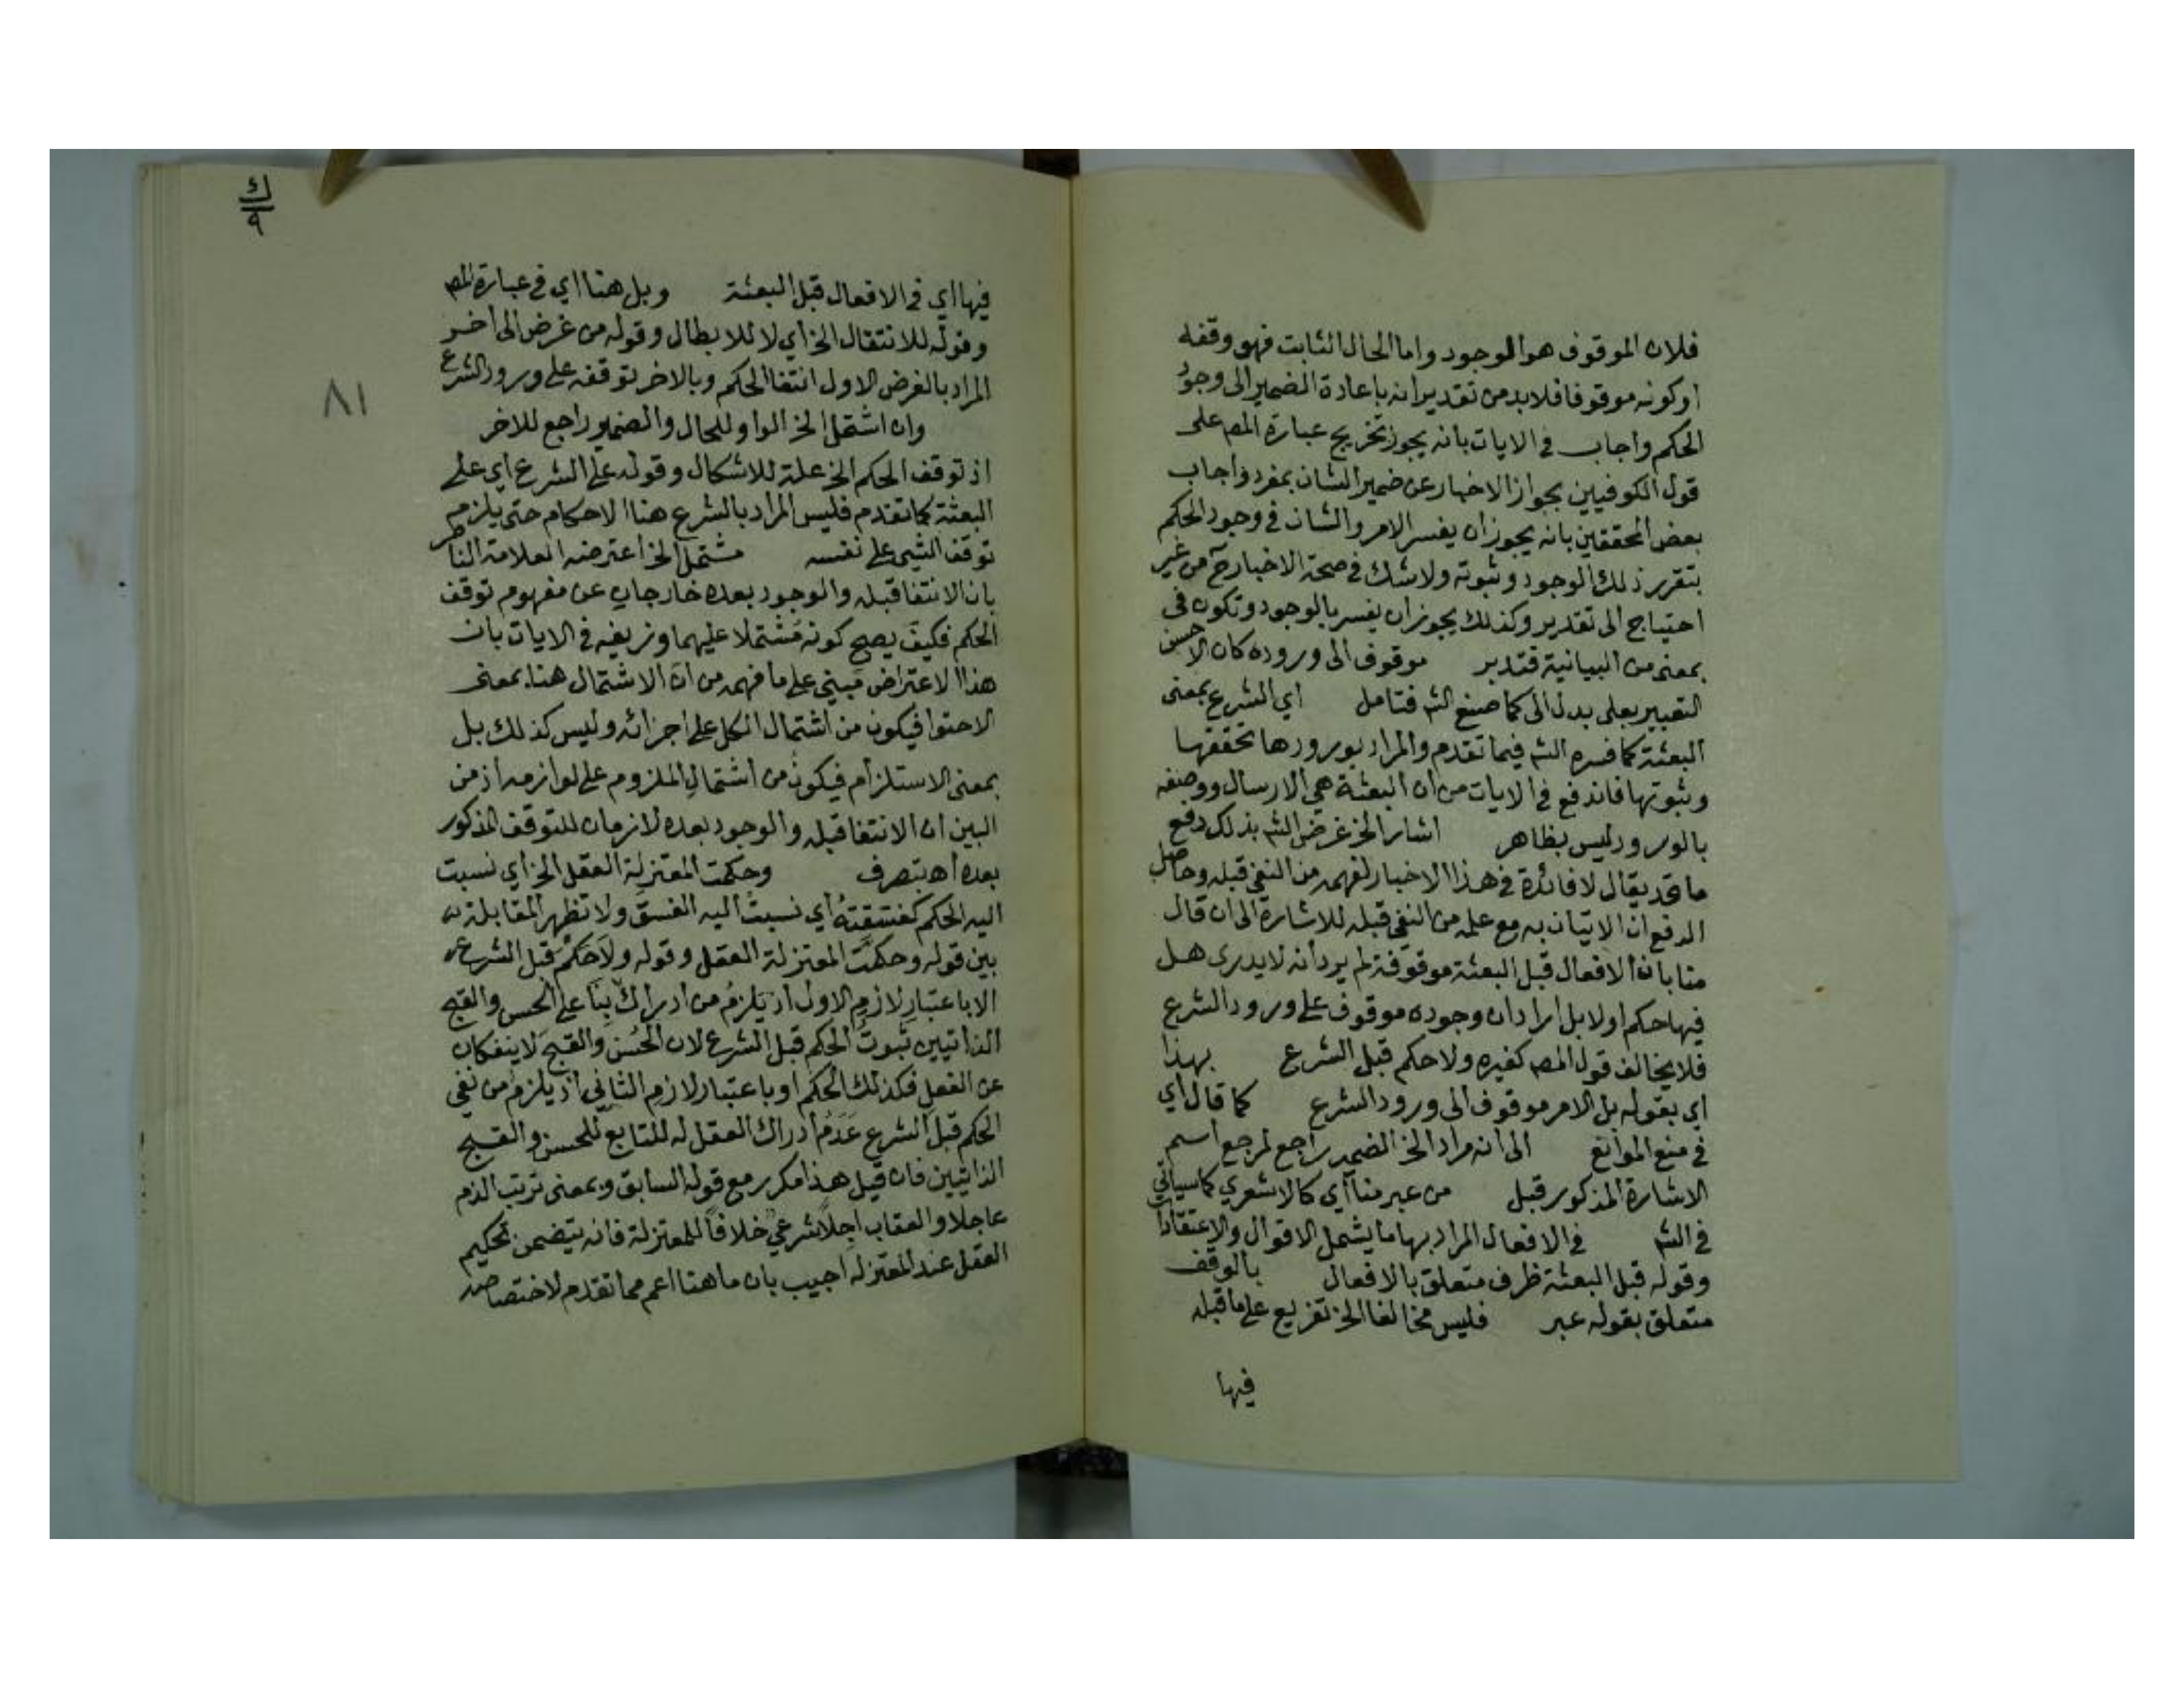 فلان الموقوف هو الوجود واما الحال الثابت فهو وقفه
اوكونه موقوفا فلابد من تقدير انه باعادة الضمير الى وجود
الحكم واجاب في الايات بانه يجوز تخريج عبارة المص على
قول الكوفيين بجواز الاخبار عن ضمير الشان بمفرد واجاب
بعض المحققين بانه يجوز ان يفسر الامر والشان في وجود الحكم
بتقرر ذلك الوجود وثبوته ولاشك في صحة الاخبار ح من غير
احتياج الى تقدير وكذلك يجوز ان يفسر بالوجود وتكون في
بمعنى من البيانية فتدبر موقوف الى وروده كان الاحسن
التعبير بعلى بدل الى كما صنع الشم فتامل اي الشرع بمعنى
البعثة كما فسره الشم فيما تقدم والمراد بورودها تحققها
وثبوتها فاندفع في الايات من ان البعثة هي الارسال ووصفه
بالورود ليس بظاهر اشار الخ غرض الشم بذلك دفع
ما قد يقال لا فائدة في هذا الاخبار لفهمه من النفي قبله وحاصل
الدفع ان الاتيان به مع علمه من النفي قبله للاشارة الى ان قال
منا بان الافعال قبل البعثة موقوفة لم يرد انه لا يدرى هل
فيها حكم اولا بل اراد ان وجوده موقوف على ورود الشرع
فلا يخالف قول المص كغيره ولا حكم قبل الشرع بهذا
اي بقوله بل الامر موقوف الى ورود الشرع كما قال اي
في منع الموانع الى انه مراد الخ الضمير راجع لمرجع اسم
الاشارة المذكور قبل من عبر منا اي كالاشعري كما سياتي
في الشم في الافعال المراد بها ما يشمل الاقوال والاعتقادات
وقوله قبل البعثة ظرف متعلق بالافعال بالوقف
متعلق بقوله عبر فليس مخالفا الخ تفريع على ما قبله
فيها
ك
٩
٨١
فيها اي في الافعال قبل البعثة وبل هنا اي في عبارة المص
وقوله للانتقال الخ اي لا للابطال وقوله من غرض الى اخر
المراد بالغرض الاول انتفا الحكم وبالاخر توقفه على ورود الشرع
وان اشتمل الخ الواو للحال والضمير راجع للاخر
اذ توقف الحكم الخ علة للاشكال وقوله على الشرع اي على
البعثة كما تقدم فليس المراد بالشرع هنا الاحكام حتى يلزم
توقف الشي على نفسه مشتمل الخ اعترضه العلامة الناصر
بان الانتفا قبله والوجود بعده خارجان عن مفهوم توقف
الحكم فكيف يصح كونه مشتملا عليهما وزيفه في الايات بان
هذا الاعتراض مبني على ما فهمه من ان الاشتمال هنا بمعنى
الاحتوا فيكون من اشتمال الكل على اجزائه وليس كذلك بل
بمعنى الاستلزام فيكون من اشتمال الملزوم على لوازمه اذ من
البين ان الانتفا قبله والوجود بعده لازمان للتوقف المذكور
بعده اه بتصرف وحكمت المعتزلة العقل الخ اي نسبت
اليه الحكم كفسقته اي نسبت اليه الفسق ولا تظهر المقابلة
بين قوله وحكمت المعتزلة العقل وقوله ولا حكم قبل الشرع
الا باعتبار لازم الاول اذ يلزم من ادراك بنا على الحسن والقبح
الذاتيين ثبوت الحكم قبل الشرع لان الحسن والقبح لا ينفكان
عن الفعل فكذلك الحكم او باعتبار لازم الثاني اذ يلزم من نفي
الحكم قبل الشرع عدم ادراك العقل له للتابع للحسن والقبح
الذاتيين فان قيل هذا مكرر مع قوله السابق وبمعنى ترتب الذم
عاجلا والعقاب اجلا شرعي خلافا للمعتزلة فانه يتضمن تحكيم
العقل عند المعتزلة اجيب بان ما هنا اعم مما تقدم لاختصاصه